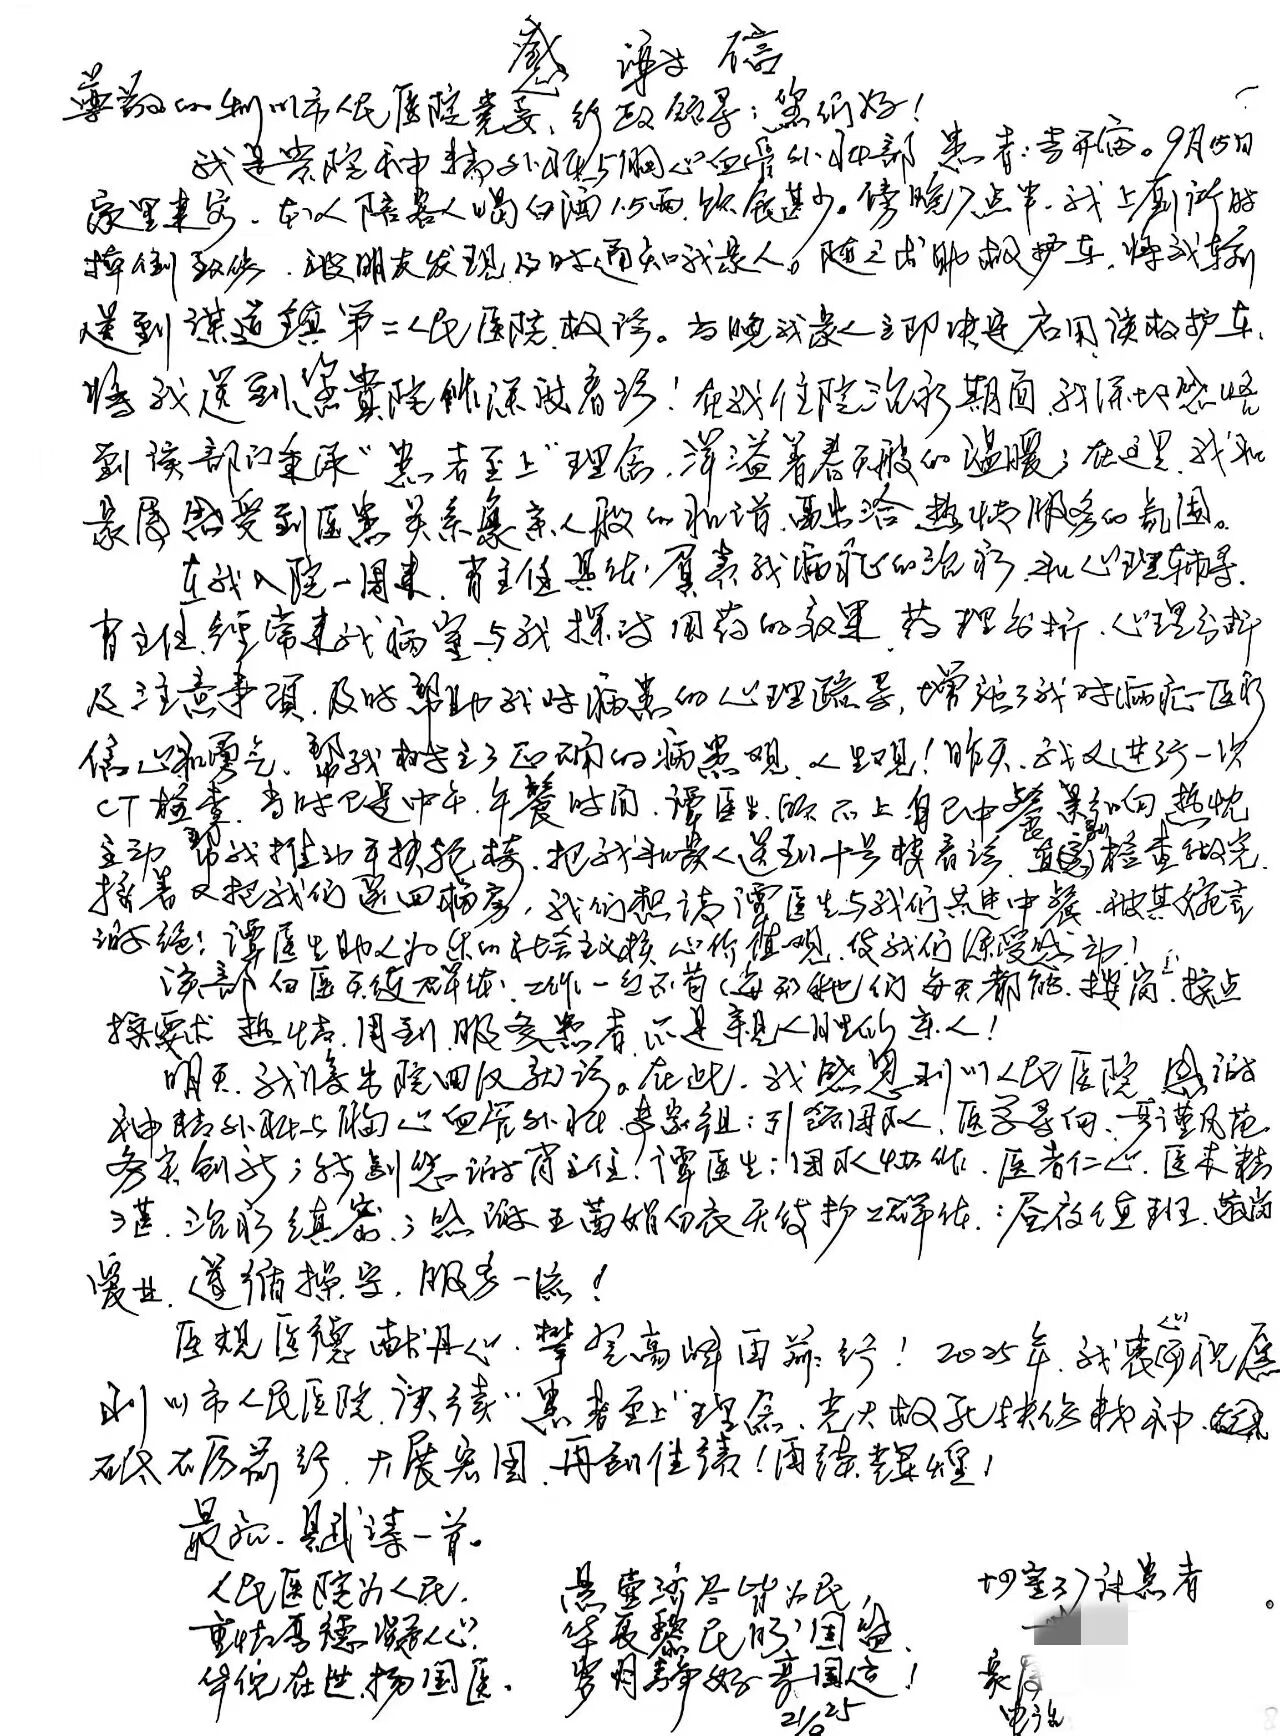 感谢信
尊敬的利川市人民医院党委、行政领导：您们好！
我是贵院神中精外科与胸心血管外科部患者：李开。9月15日
家里来客，本人陪客人喝白酒1.5两，饮食甚少。傍晚7点半，我上厕所时
摔倒致伤，被朋友发现及时通知我家人。随之求助救护车，将我输
送到谋道镇第二人民医院救诊。当晚我家人立即决定启用该救护车，
将我送到您贵院作深彼看诊！在我住院治疗期间，我深切感悟
到该部门秉承“患者至上”理念，洋溢着春天般的温暖；在这里，我和
家属感受到医患关系像亲人般的和谐、融洽热情服务的氛围。
在我入院一周来，肖主任具体负责我病症的治疗和心理辅导，
肖主任经常来我病室与我探讨用药的效果、药理分析、心理分析
及注意事项，及时帮助我对病患的心理疏导，增强了我对病症医疗
信心和勇气，帮我树立了正确的病患观、人生观！昨天，我又进行一次
CT检查，当时已是中午，午餐时间，谭医生顾不上自己中餐影响，热忱
主动帮我推动平换轮椅，把我和家人送到十号楼看诊，直到检查做完，
接着又把我们送回病房，我们想请谭医生与我们共进中餐，被其婉言
谢绝！谭医生助人为乐的社会主义核心价值观，使我们深受感动！
该部白医天使群体，工作一丝不苟，她们每天都能按岗、按点
按要求热情、周到服务患者，不是亲人胜似亲人！
明天，我将出院回汉就诊。在此，我感恩利川人民医院，感谢
神中精外科与胸心血管外科专家组：引领团队，医学导向、严谨风范
务实创新；特别感谢肖主任！谭医生：团队协作、医者仁心、医术精
湛、治疗缜密；感谢王茜娟白衣天使护工群体：昼夜值班、敬岗
爱业、遵循操守，服务一流！
医规医德献丹心，攀登高峰再前行！2025年，我衷心祝愿
利川市人民医院，谈续“患者至上”理念，光大救死扶伤精神，
砥砺前行，大展宏图，再创佳绩！再续辉煌！
最后，具赋诗一首。
人民医院为人民，
重情厚德凝人心。
华佗在世扬国医。
悬壶济世皆为民，
华夏黎民盼国盛，
岁月静好享国运！
21/9 25
切室37床患者
家属
电话